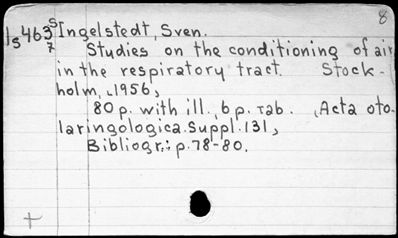 8
S Ingelstedt, Sven.
Is 463
7 Studies on the conditioning of air
in the respiratory tract. Stock-
holm, 1956,
80 p. with ill., 6 p. Tab. (Acta oto.
laringologica. Suppl. 131,
Bibliogr.: p. 78-80.
+